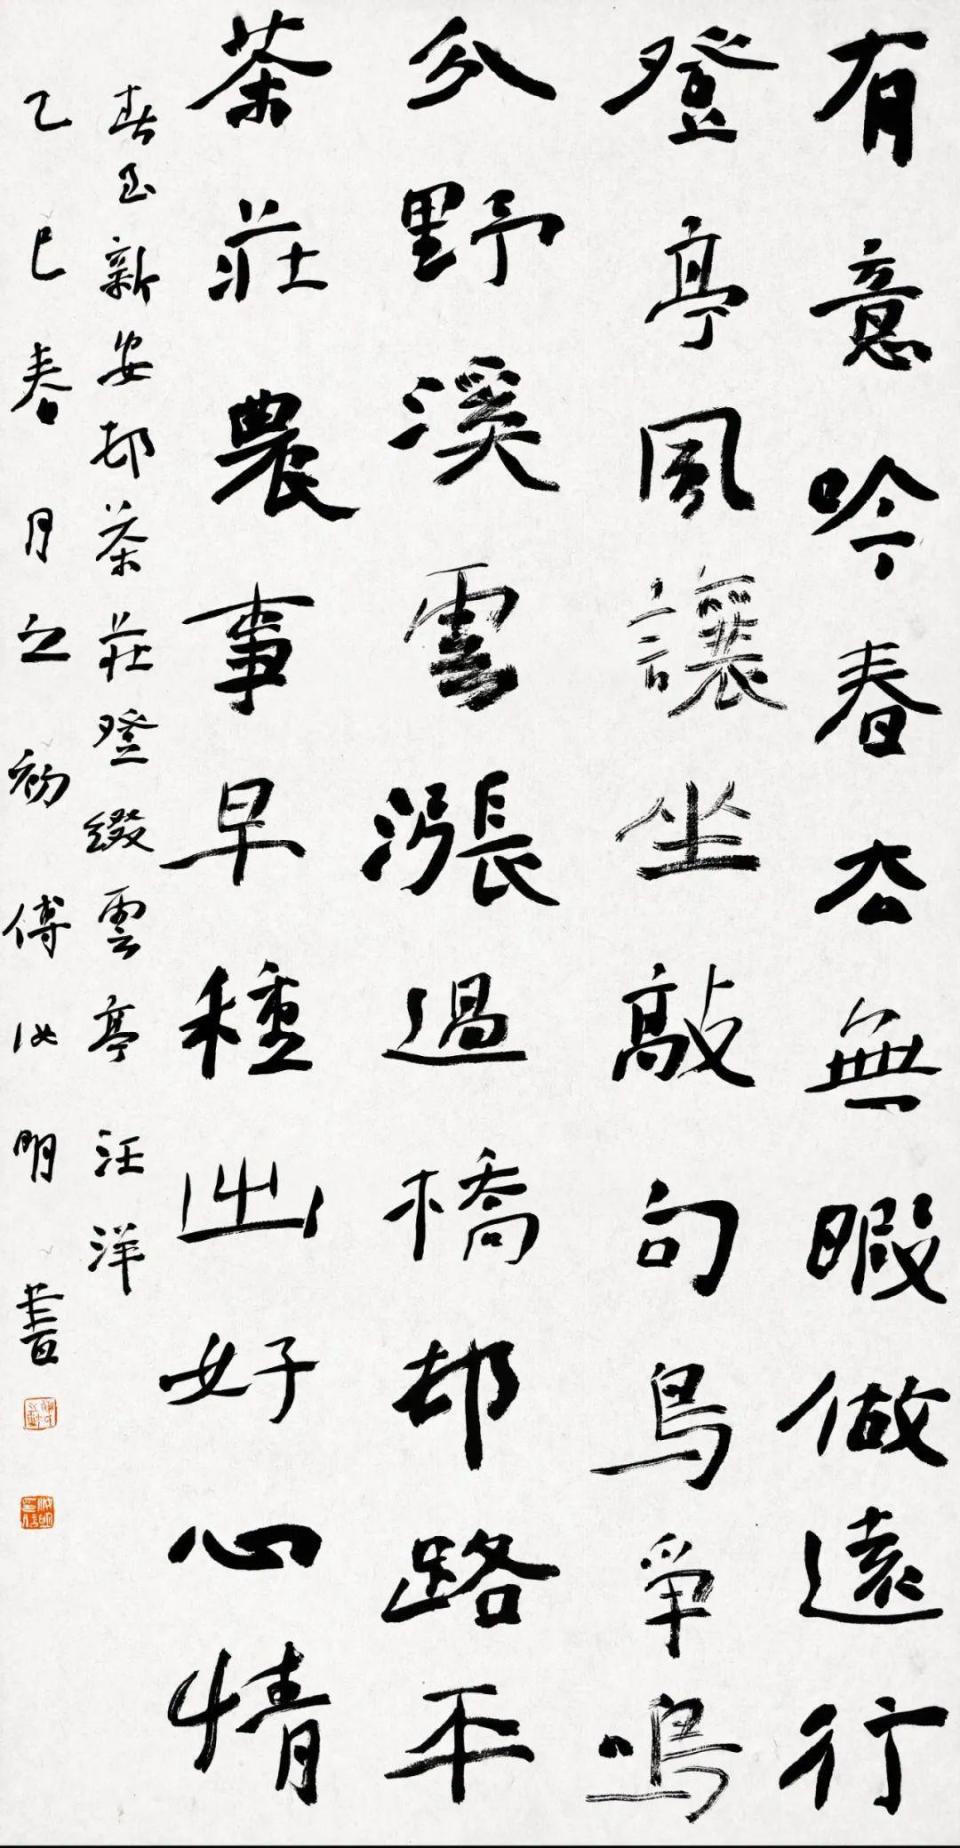 有意吟春去無暇做遠行
登亭風讓坐敲句鳥爭鳴
分野溪雲漲過橋邨路平
茶莊農事早種出好心情
春至新安邨茶莊登綴雲亭 汪洋
乙巳春月之初傅汝明書